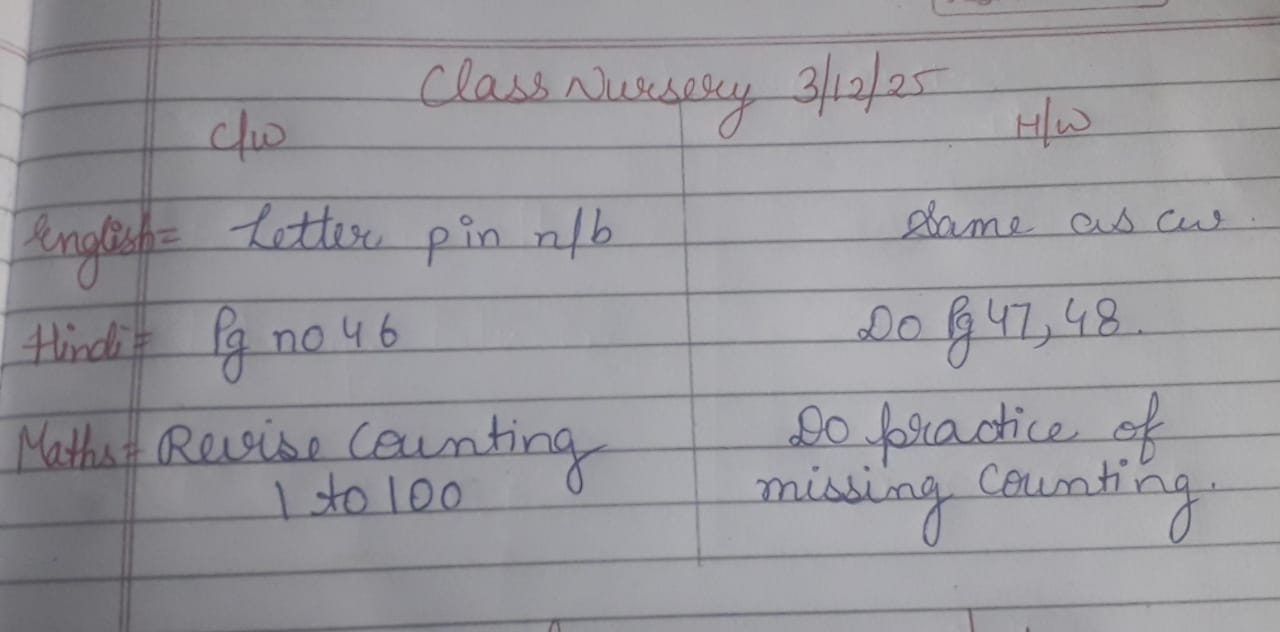 Class Nursery 3/12/25
C/W H/W
English= Letter p in n/b Same as cw.
Hindi= Pg no 46 Do Pg 47, 48.
Maths= Revise Counting Do practice of
1 to 100 missing Counting.